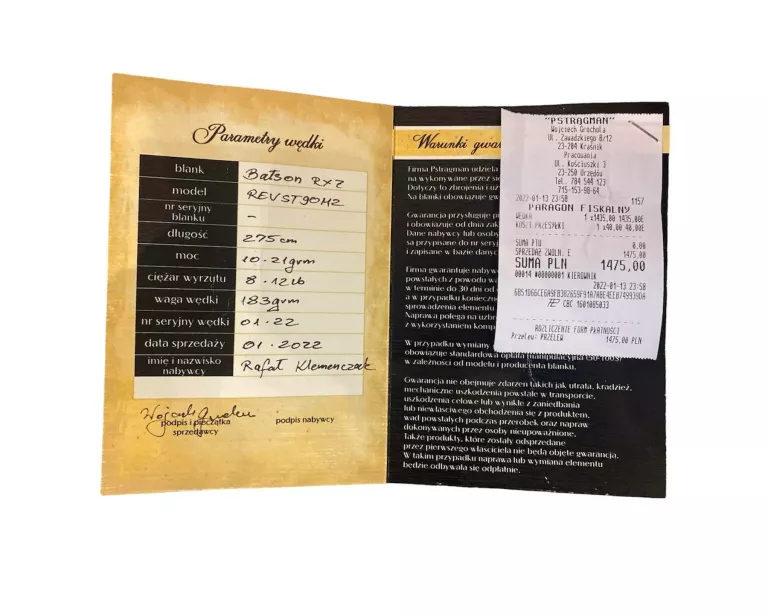 Parametry wędki
blank Batson RX7
model REVST90M2
nr seryjny blanku -
długość 275cm
moc 10-21grm
ciężar wyrzutu 8-12lb
waga wędki 183grm
nr seryjny wędki 01.22
data sprzedaży 01.2022
imię i nazwisko nabywcy Rafał Klemenczak
podpis i pieczątka sprzedawcy
podpis nabywcy
Warunki gwa
Firma Pstrągman udziela
na wykonywane przez si
Dotyczy to zbrojenia i u
Na blanki obowiązuje gw
Gwarancja przysługuje p
i obowiązuje od dnia zak
Dane nabywcy lub osoby
są przypisane do nr sery
i zapisane w bazie danyc
Firma gwarantuje nabyw
powstałych z powodu wa
w terminie do 30 dni od
a w przypadku koniecznoś
sprowadzenia elementu
Naprawa polega na uzbro
z wykorzystaniem komp
W przypadku wymiany
obowiązuje standardowa opłata (manipulacyjna
w zależności od modelu i producenta blanku.
Gwarancja nie obejmuje zdarzeń takich jak utrata, kradzież,
mechaniczne uszkodzenia powstałe w transporcie,
uszkodzenia celowe lub wynikłe z zaniedbania
lub niewłaściwego obchodzenia się z produktem,
wad powstałych podczas przeróbek oraz napraw
dokonywanych przez osoby nieupoważnione.
Także produkty, które zostały odsprzedane
przez pierwszego właściciela nie będą objęte gwarancją.
W takim przypadku naprawa lub wymiana elementu
będzie odbywała się odpłatnie.
"PSTRĄGMAN"
Wojciech Grochola
Ul. Zawadzkiego 8/12
23-204 Kraśnik
Pracownia
Ul. Kościuszki 3
23-250 Urzędów
Tel. 784 544 123
715-153-98-64
2022-01-13 23:58 1157
PARAGON FISKALNY
WĘDKA 1 x1435,00 1435,00E
KOSZT PRZESYŁKI 1 x40,00 40,00E
SUMA PTU 0,00
SPRZEDAŻ ZWOLN. E 1475,00
SUMA PLN 1475,00
00014 #00000001 KIEROWNIK
2022-01-13 23:58
CBC 1601085033
ROZLICZENIE FORM PŁATNOŚCI
Przelew: PRZELEW 1475,00 PLN